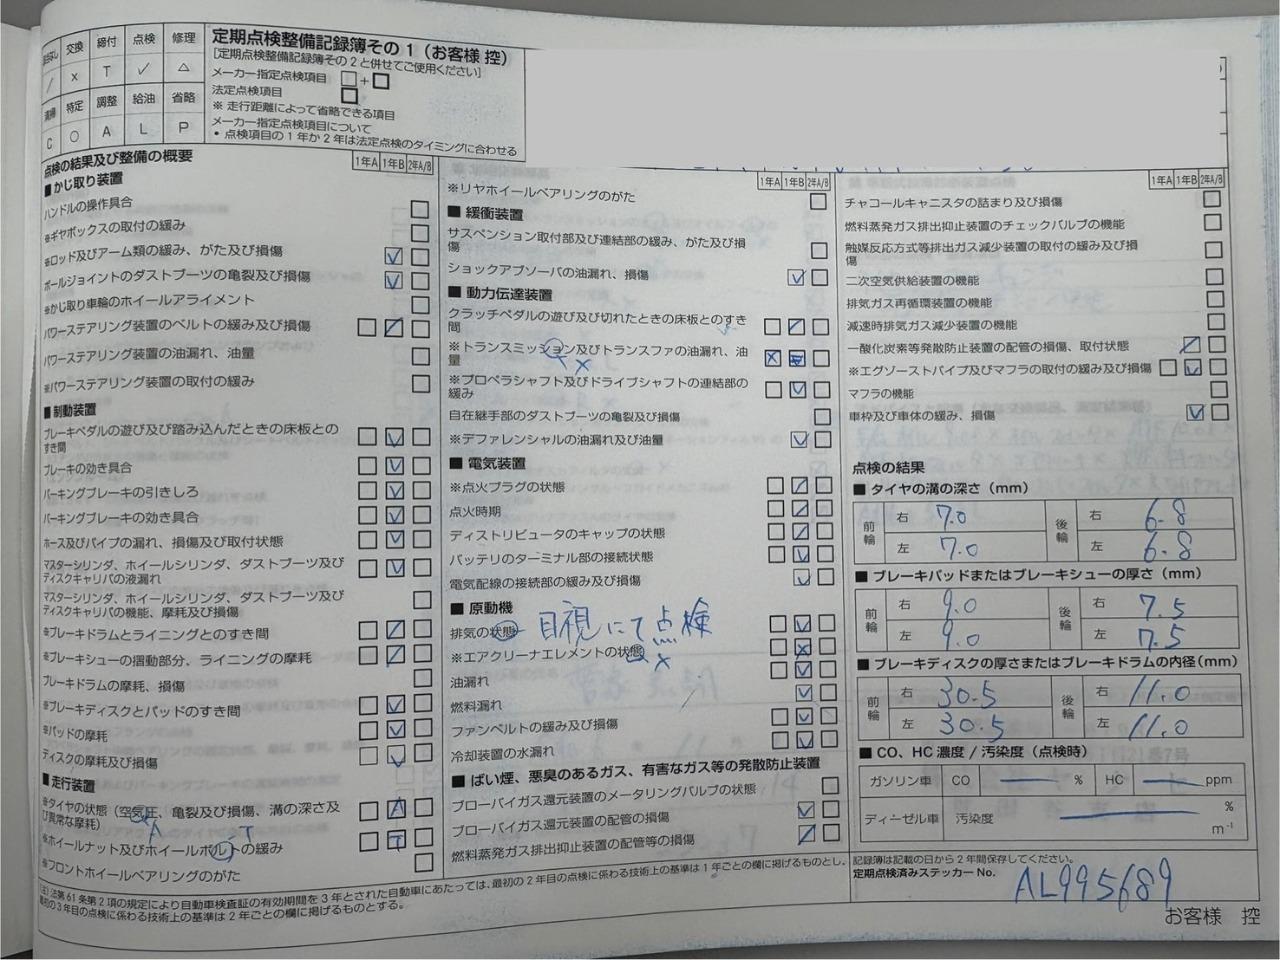 交換 締付 点検 修理
/ × T ✓ △
特定 調整 給油 省略
C ○ A L P
定期点検整備記録簿その1（お客様 控）
［定期点検整備記録簿その2と併せてご使用ください］
メーカー指定点検項目 □+□
法定点検項目 □
※ 走行距離によって省略できる項目
メーカー指定点検項目について
• 点検項目の1年か2年は法定点検のタイミングに合わせる
点検の結果及び整備の概要
1年A 1年B 2年A/B
■ かじ取り装置
ハンドルの操作具合
※ギヤボックスの取付の緩み
※ロッド及びアーム類の緩み、がた及び損傷
ボールジョイントのダストブーツの亀裂及び損傷
※かじ取り車輪のホイールアライメント
パワーステアリング装置のベルトの緩み及び損傷
パワーステアリング装置の油漏れ、油量
※パワーステアリング装置の取付の緩み
■ 制動装置
ブレーキペダルの遊び及び踏み込んだときの床板との
すき間
ブレーキの効き具合
パーキングブレーキの引きしろ
パーキングブレーキの効き具合
ホース及びパイプの漏れ、損傷及び取付状態
マスターシリンダ、ホイールシリンダ、ダストブーツ及び
ディスクキャリパの液漏れ
マスターシリンダ、ホイールシリンダ、ダストブーツ及び
ディスクキャリパの機能、摩耗及び損傷
※ブレーキドラムとライニングとのすき間
※ブレーキシューの摺動部分、ライニングの摩耗
ブレーキドラムの摩耗、損傷
※ブレーキディスクとパッドのすき間
※パッドの摩耗
ディスクの摩耗及び損傷
■ 走行装置
※タイヤの状態（空気圧、亀裂及び損傷、溝の深さ及
び異常な摩耗）
A
A
T
※ホイールナット及びホイールボルトの緩み
T
※フロントホイールベアリングのがた
1年A 1年B 2年A/B
※リヤホイールベアリングのがた
■ 緩衝装置
サスペンション取付部及び連結部の緩み、がた及び損
傷
ショックアブソーバの油漏れ、損傷
■ 動力伝達装置
クラッチペダルの遊び及び切れたときの床板とのすき
間
※トランスミッション及びトランスファの油漏れ、油
量
× ×
※プロペラシャフト及びドライブシャフトの連結部の
緩み
自在継手部のダストブーツの亀裂及び損傷
※デファレンシャルの油漏れ及び油量
■ 電気装置
※点火プラグの状態
点火時期
ディストリビュータのキャップの状態
バッテリのターミナル部の接続状態
電気配線の接続部の緩み及び損傷
■ 原動機
排気の状態
目視にて点検
※エアクリーナエレメントの状態
×
油漏れ
燃料漏れ
ファンベルトの緩み及び損傷
冷却装置の水漏れ
■ ばい煙、悪臭のあるガス、有害なガス等の発散防止装置
ブローバイガス還元装置のメータリングバルブの状態
ブローバイガス還元装置の配管の損傷
燃料蒸発ガス排出抑止装置の配管等の損傷
1年A 1年B 2年A/B
チャコールキャニスタの詰まり及び損傷
燃料蒸発ガス排出抑止装置のチェックバルブの機能
触媒反応方式等排出ガス減少装置の取付の緩み及び損
傷
二次空気供給装置の機能
排気ガス再循環装置の機能
減速時排気ガス減少装置の機能
一酸化炭素等発散防止装置の配管の損傷、取付状態
※エグゾーストパイプ及びマフラの取付の緩み及び損傷
マフラの機能
車枠及び車体の緩み、損傷
点検の結果
■ タイヤの溝の深さ（mm）
前輪 右 7.0 後輪 右 6.8
左 7.0 左 6.8
■ ブレーキパッドまたはブレーキシューの厚さ（mm）
前輪 右 9.0 後輪 右 7.5
左 9.0 左 7.5
■ ブレーキディスクの厚さまたはブレーキドラムの内径（mm）
前輪 右 30.5 後輪 右 11.0
左 30.5 左 11.0
■ CO、HC 濃度 / 汚染度（点検時）
ガソリン車 CO — % HC — ppm
ディーゼル車 汚染度 — %
m⁻¹
（注）法第61条第2項の規定により自動車検査証の有効期間を3年とされた自動車にあたっては、最初の2年目の点検に係わる技術上の基準は1年ごとの欄に掲げるものとし、
最初の3年目の点検に係わる技術上の基準は2年ごとの欄に掲げるものとする。
記録簿は記載の日から2年間保存してください。
定期点検済みステッカー No. AL995689
お客様 控